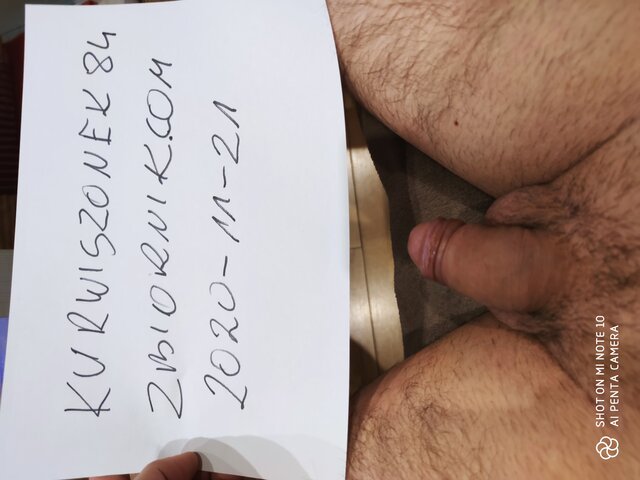 KURWISZONEK84
ZBIORNIK.COM
2020-11-21
SHOT ON MI NOTE 10
AI PENTA CAMERA